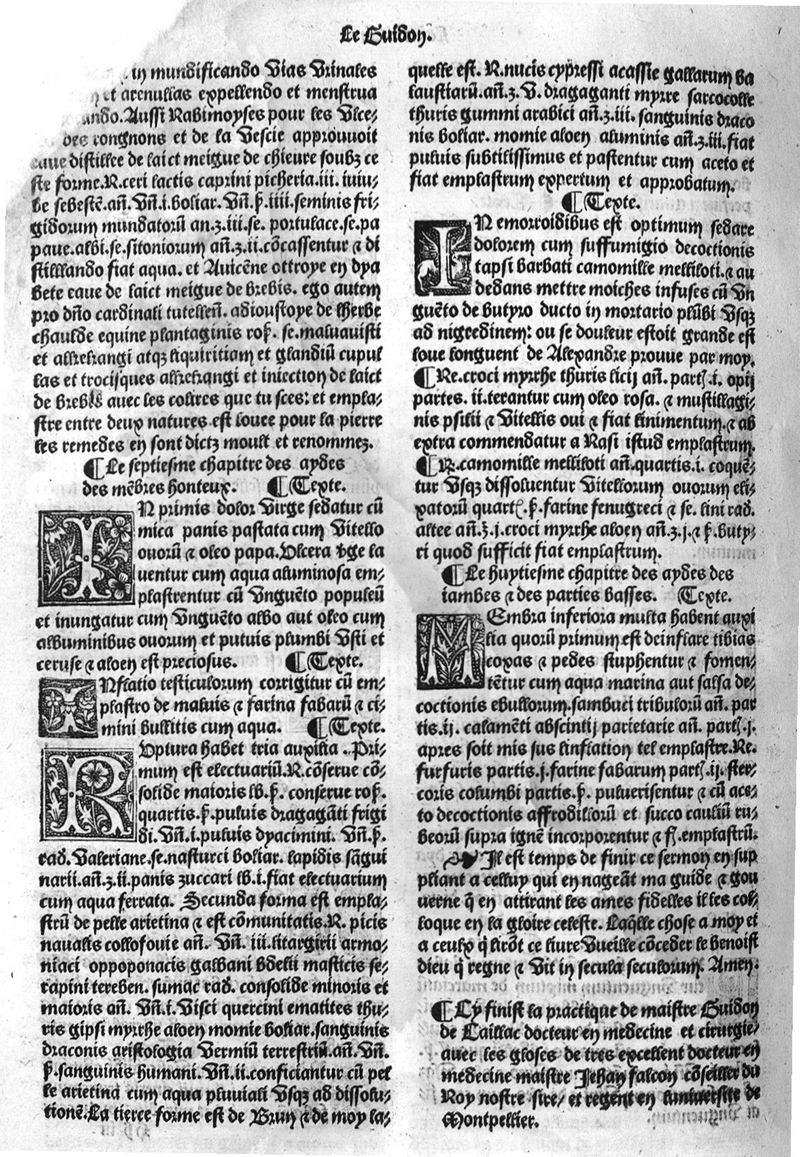 Le Guidon.
in mundificando vias vrinales
et arenullas expellendo et menstrua
ando. Aussi Rabimoyses pour les vlce-
des rongnons et de la vescie approuuoit
eaue distillee de laict meigue de chieure soubz ce
ste forme. R. ceri lactis caprini picheria. iii. iuiu-
be sebestē. añ. Vñ. i. boliar. Vñ. p̄. iiii. seminis fri-
gidorum mundatorū an. ʒ. iii. se. portulace. se. pa
paue. albi. se. sitoniorum añ. ʒ. ii. cōcassentur ⁊ di
stillando fiat aqua. et Auicēne ottroye en dya
bete eaue de laict meigue de brebis. ego autem
pro dño cardinali tutelleñ. adioustoye de lherbe
chaulde equine plantaginis ros̄. se. maluauisti
et alkekangi atqз liquiritiam et glandiū cupul
las et trocisques alkekangi et iniection de laict
de brebis auec les colires que tu scees: et empla-
stre entre deux natures est louee pour la pierre
les remedes en sont dictz moult et renommez.
¶ Le septiesme chapitre des aydes
des mēbres honteux. ¶ Texte.
IN primis dolor virge sedatur cū
mica panis pastata cum vitello
ouorū ⁊ oleo papa. Vlcera vge la
uentur cum aqua aluminosa em-
plastrentur cū vnguēto populeū
et inungatur cum vnguēto albo aut oleo cum
albuminibus ouorum et putuis plumbi vsti et
ceruse ⁊ aloen est preciosus. ¶ Texte.
INflatio testiculorum corrigitur cū em-
plastro de maluis ⁊ farina fabarū ⁊ ci-
mini bullitis cum aqua. ¶ Texte.
RVptura habet tria auxilia. Pri-
mum est electuariū. R. cōserue cō-
solide maioris lb. p̄. conserue ros̄.
quartis. p̄. puluis dragagāti frigi
di. Vñ. i. puluis dyacimini. Vñ. p̄.
rad. Valeriane. se. nasturci boliar. lapidis sāgui
narii. añ. ʒ. ii. panis zuccari lb. i. fiat electuarium
cum aqua ferrata. Secunda forma est empla-
strū de pelle arietina ⁊ est cōmunitatis. R. picis
naualis collofonie añ. Vñ. iii. litargirii armo-
niaci oppoponacis galbani bdelii masticis se-
rapini tereben. sumac rad. consolide minoris et
maioris añ. Vñ. i. Visci quercini ematites thu-
ris gipsi myrrhe aloen momie boliar. sanguinis
draconis aristologia vermiū terrestriū. añ. Vñ.
p̄. sanguinis humani. Vñ. ii. conficiantur cū pel
le arietina cum aqua pluuiali vsqз ad dissolu-
tionē. La tierce forme est de Brun ⁊ de moy la-
quelle est. R. nucis cypressi acassie gallarum ba
laustiarū. añ. ʒ. V. dragaganti myrre sarcocolle
thuris gummi arabici añ. ʒ. iii. sanguinis draco
nis boliar. momie aloen aluminis añ. ʒ. iii. fiat
puluis subtilissimus et pastentur cum aceto et
fiat emplastrum expertum et approbatum.
¶ Texte.
IN emorroidibus est optimum sedare
dolorem cum suffumigio decoctionis
tapsi barbati camomille melliloti. ⁊ au
dedans mettre moiches infuses cū vn
guēto de butyro ducto in mortario plūbi vsqз
ad nigredinem: ou se douleur estoit grande est
loue longuent de Alexandre prouue par moy.
¶ Re. croci myrrhe thuris licij añ. part. i. opij
partes. ii. terantur cum oleo rosa. ⁊ mustillagi-
nis psilii ⁊ vitellis oui ⁊ fiat linimentum. ⁊ ab
extra commendatur a Rasi istud emplastrum.
¶ R. camomille melliloti añ. quartis. i. coquē-
tur vsqз dissoluentur vitellorum ouorum eli-
xatorū quart. p̄. farine fenugreci ⁊ se. lini rad.
altee añ. ʒ. i. croci myrrhe aloen añ. ʒ. i. ⁊ p̄. buty-
ri quod sufficit fiat emplastrum.
¶ Le huytiesme chapitre des aydes des
iambes ⁊ des parties basses. ¶ Texte.
MEmbra inferiora multa habent auxi
lia quorū primum est deinflare tibias
coxas ⁊ pedes stuphentur ⁊ fomen-
tētur cum aqua marina aut salsa de-
coctionis ebullorum. sambuci tribulorū añ. par
tis. ij. calamēti abscintij parietarie añ. part. j.
apres soit mis sus linflation tel emplastre. Re.
furfuris partis. j. farine fabarum part. ij. ster-
coris columbi partis. p̄. puluerisentur ⁊ cū ace-
to decoctionis affrodillorū et succo cauliū ru-
beorū supra ignē incorporentur ⁊ f. emplastrū.
☙ Il est temps de finir ce sermon en sup
pliant a celluy qui en nageāt ma guide ⁊ gou
uerne q̄ en attirant les ames fidelles il les col-
loque en la gloire celeste. Laq̄lle chose a moy et
a ceulx q̄ lirōt ce liure vueille cōceder le benoist
dieu q̄ regne ⁊ vit in secula seculorum. Amen.
¶ Cy finist la practique de maistre Guidon
de Caillac docteur en medecine et cirurgie,
auec les gloses de tres excellent docteur en
medecine maistre Jehan falcon cōseiller du
Roy nostre sire/ et regent en luniuersite de
Montpellier.